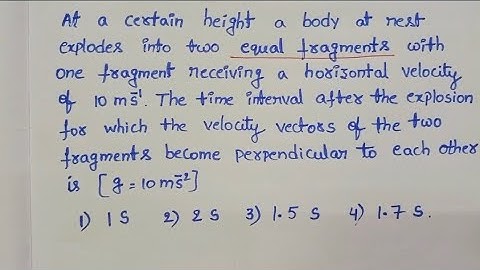 At a certain height a body at rest
explodes into two equal fragments with
one fragment receiving a horizontal velocity
of 10 ms⁻¹. The time interval after the explosion
for which the velocity vectors of the two
fragments become perpendicular to each other
is [g = 10 ms⁻²]
1) 1 S 2) 2 S 3) 1.5 S 4) 1.7 S.